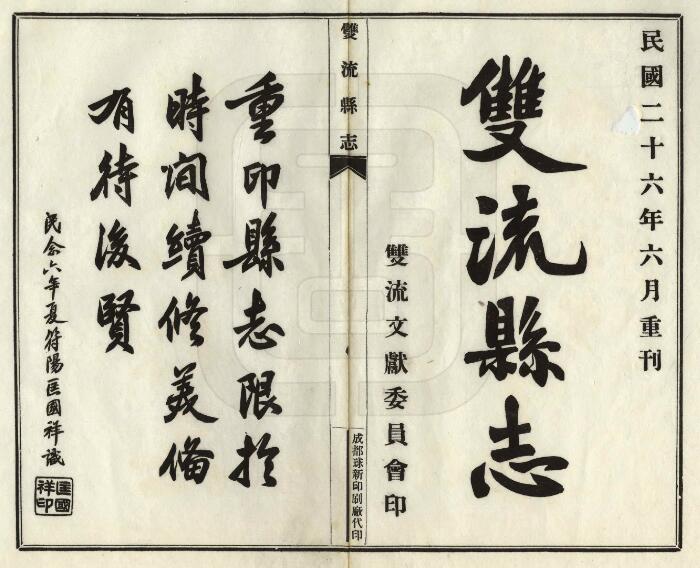 民國二十六年六月重刊
雙流縣志
雙流文獻委員會印
雙流縣志
成都球新印刷廠代印
重印縣志限於
時間續修美備
有待後賢
民念六年夏符陽匡國祥識
匡國祥印